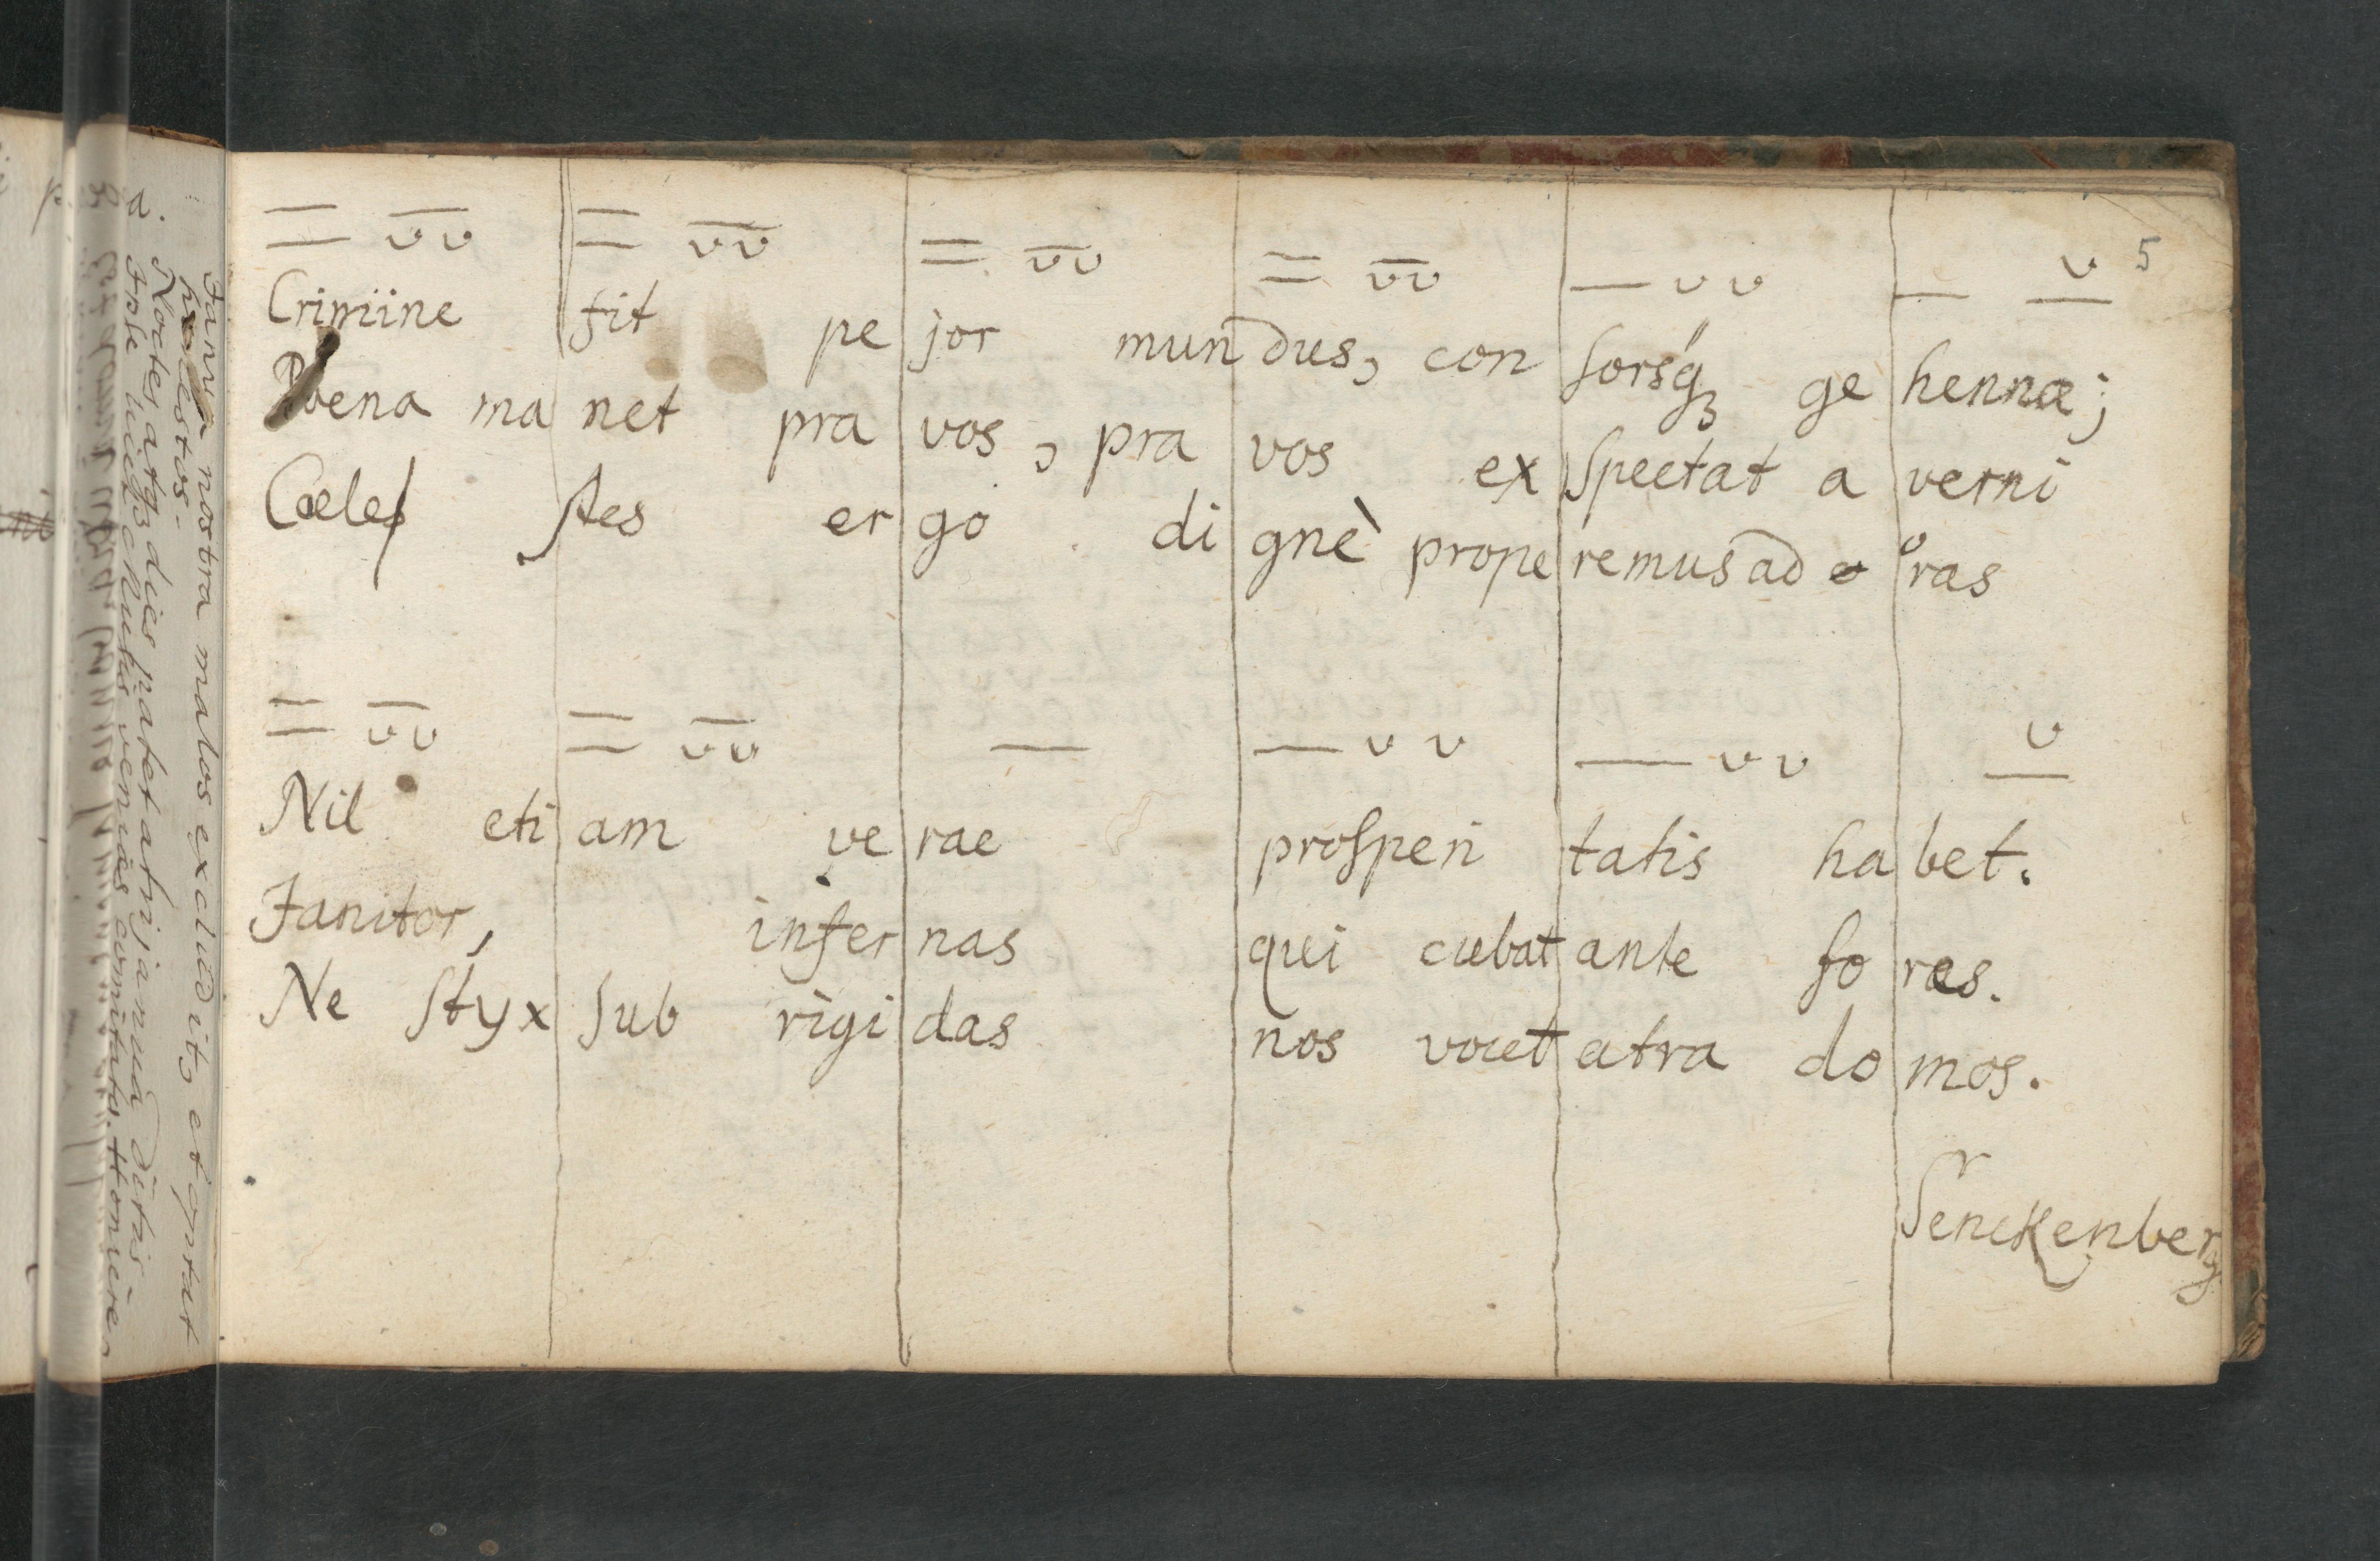 5
Crimine fit pe jor mun dus, con sorsq́ꝫ ge hennæ;
Poena ma net pra vos, pra vos ex spectat a verni
Cœles stes er go di gnè prope remus ad o ras
Nil eti am ve rae prosperi tatis ha bet.
Janitor, infer nas qui cubat ante fo ras.
Ne styx sub rigi das nos vocet atra do mos.
Senckenberg
a.
Janua nostra malos excludit, et optat
honestos.
Noctes atqꝫ dies patet atri janua ditis